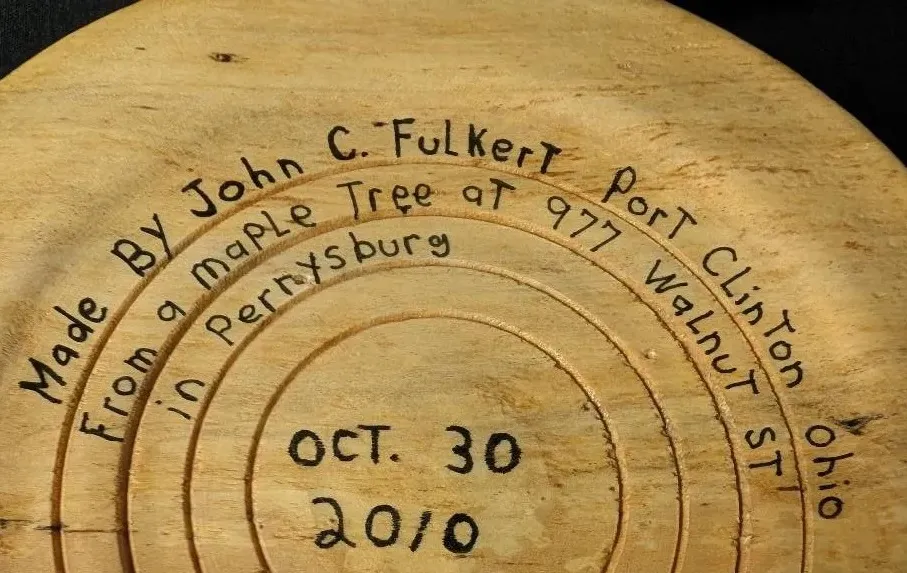 Made By John C. Fulkert Port Clinton Ohio
From a maple Tree at 977 Walnut ST
in Perrysburg
OCT. 30
2010